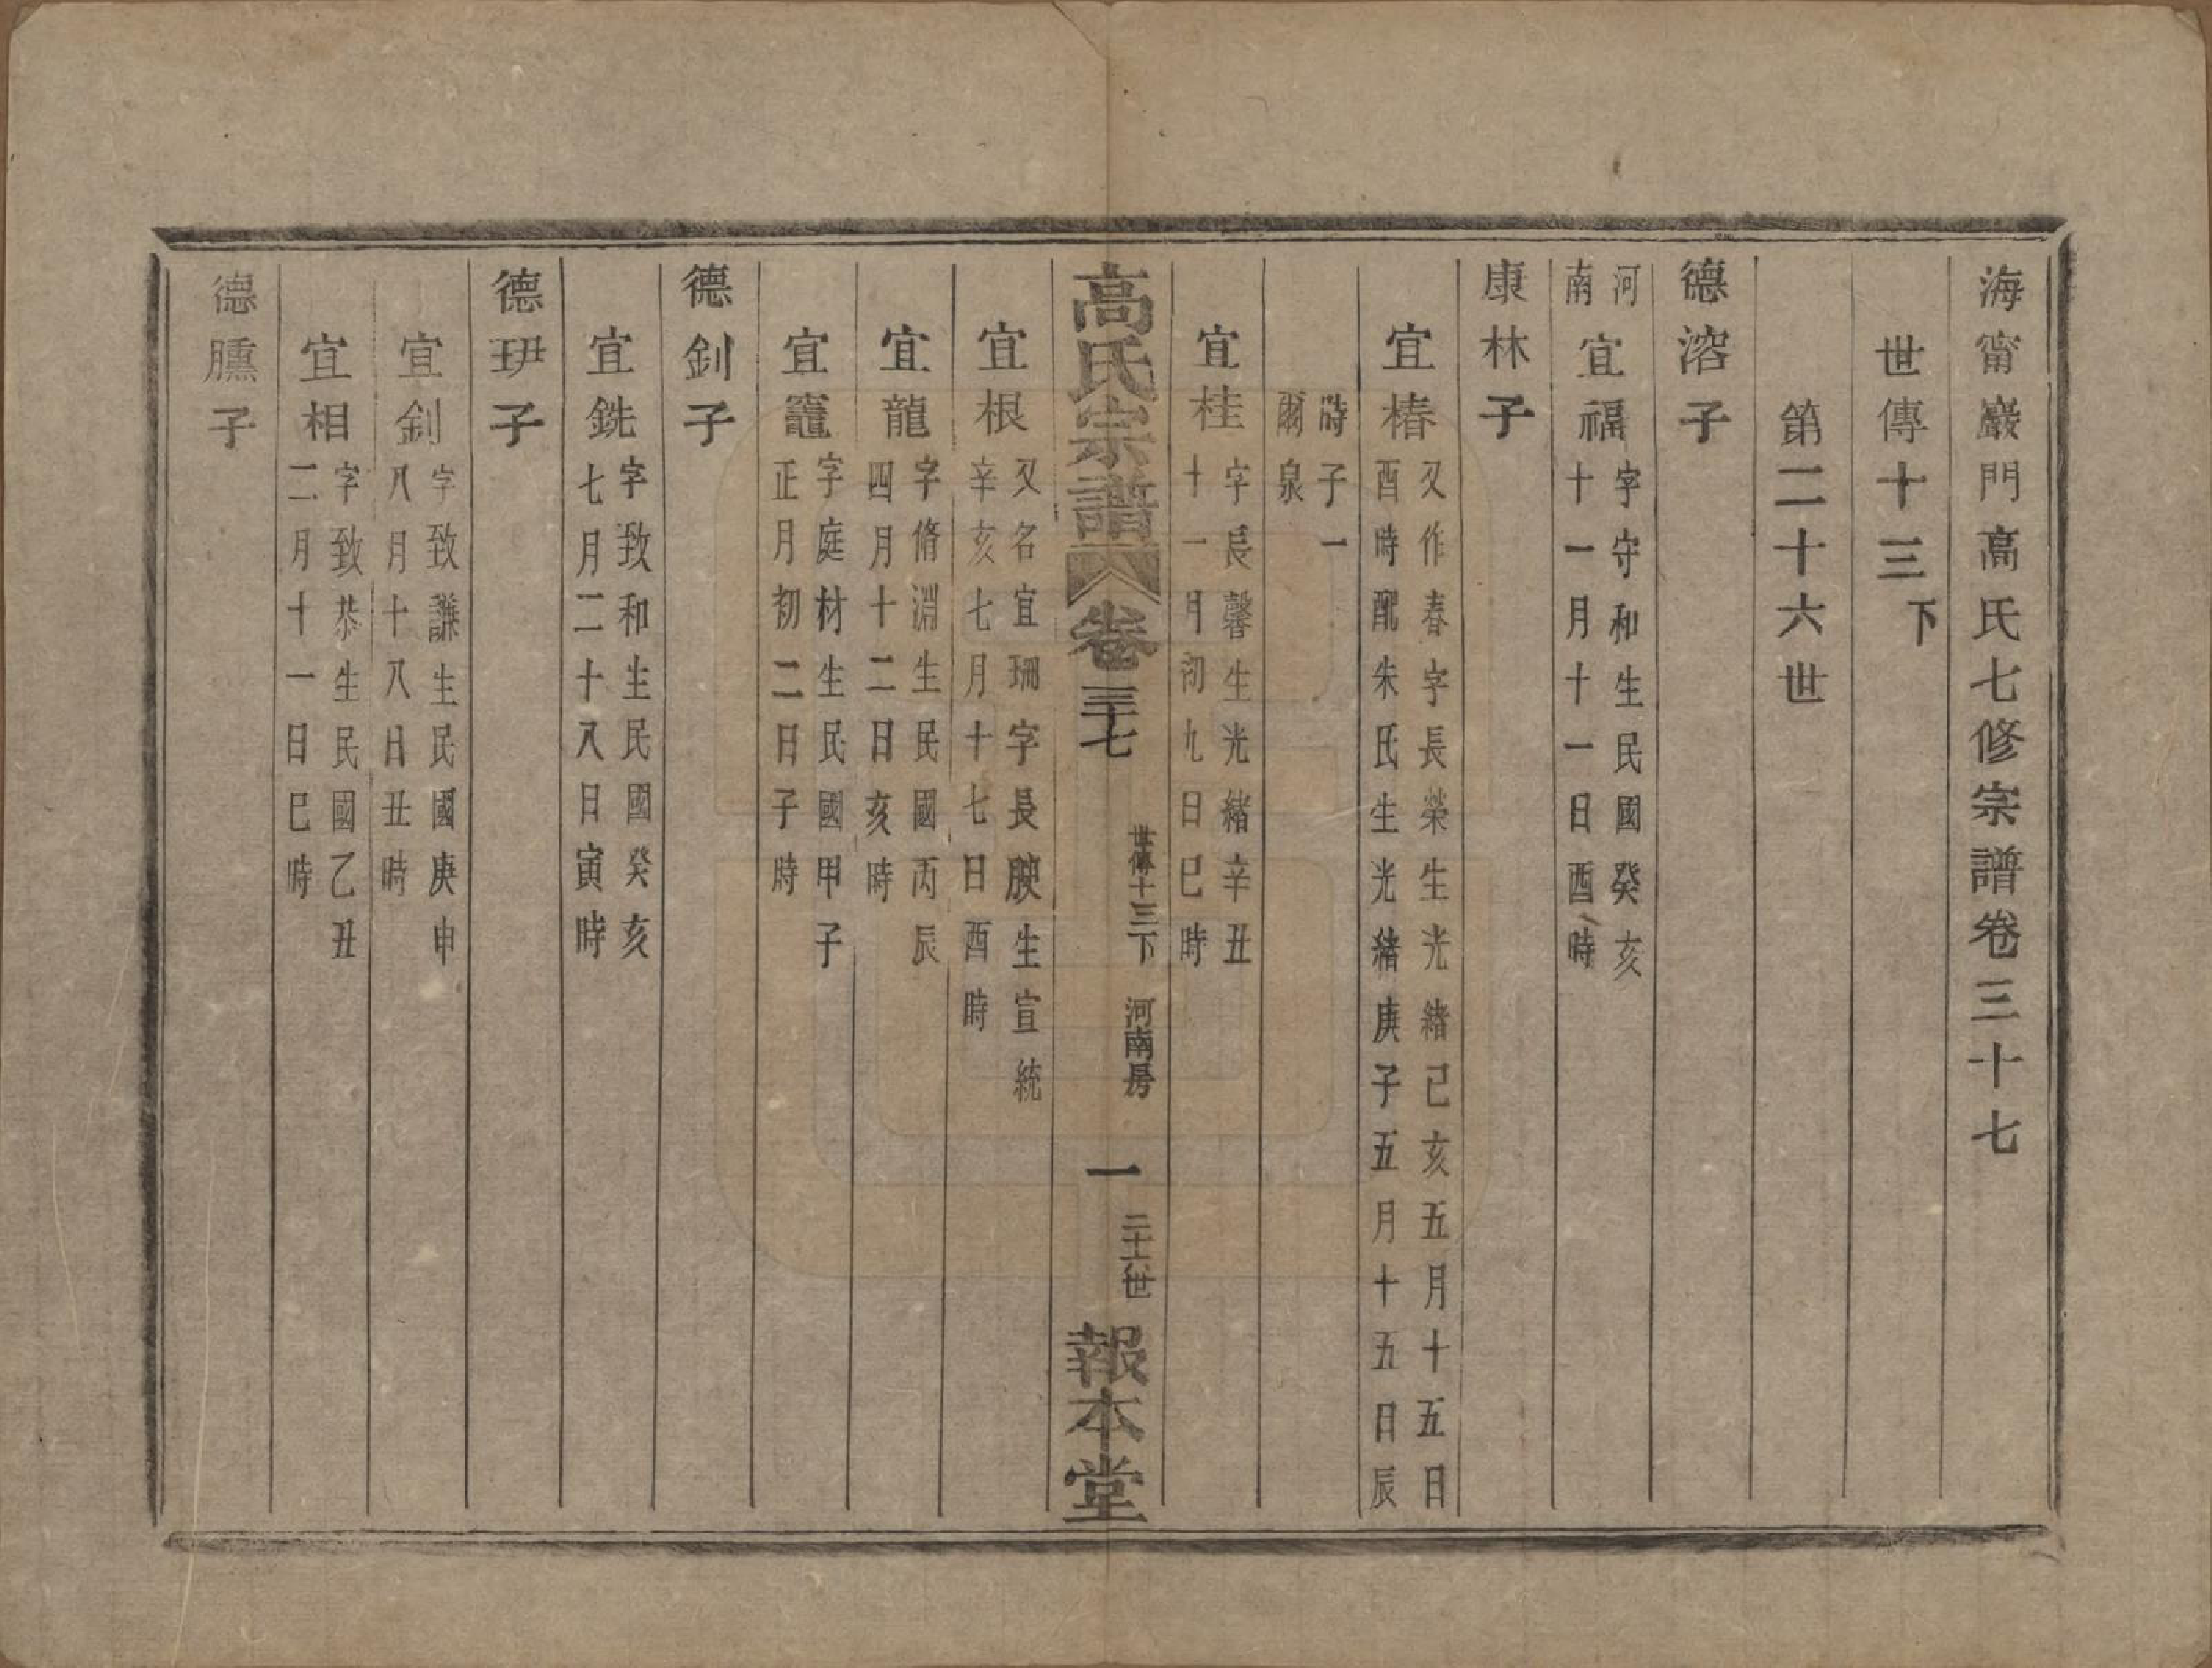 海甯巖門高氏七修宗譜卷三十七
世傳十三下
第二十六世
德溶子
河南
宜福
字守和生民國癸亥
十一月十一日酉時
康林子
宜椿
又作春字長榮生光緒己亥五月十五日
酉時配朱氏生光緒庚子五月十五日辰
時子一
爾泉
宜桂
字長馨生光緒辛丑
十一月初九日巳時
高氏宗譜
卷三十七
世傳十三下
河南房
一
二十六世
報本堂
宜根
又名宜珊字長腴生宣統
辛亥七月十七日酉時
宜龍
字脩淵生民國丙辰
四月十二日亥時
宜竈
字庭材生民國甲子
正月初二日子時
德釗子
宜銑
字致和生民國癸亥
七月二十八日寅時
德玾子
宜釗
字致謙生民國庚申
八月十八日丑時
宜相
字致恭生民國乙丑
二月十一日巳時
德臐子